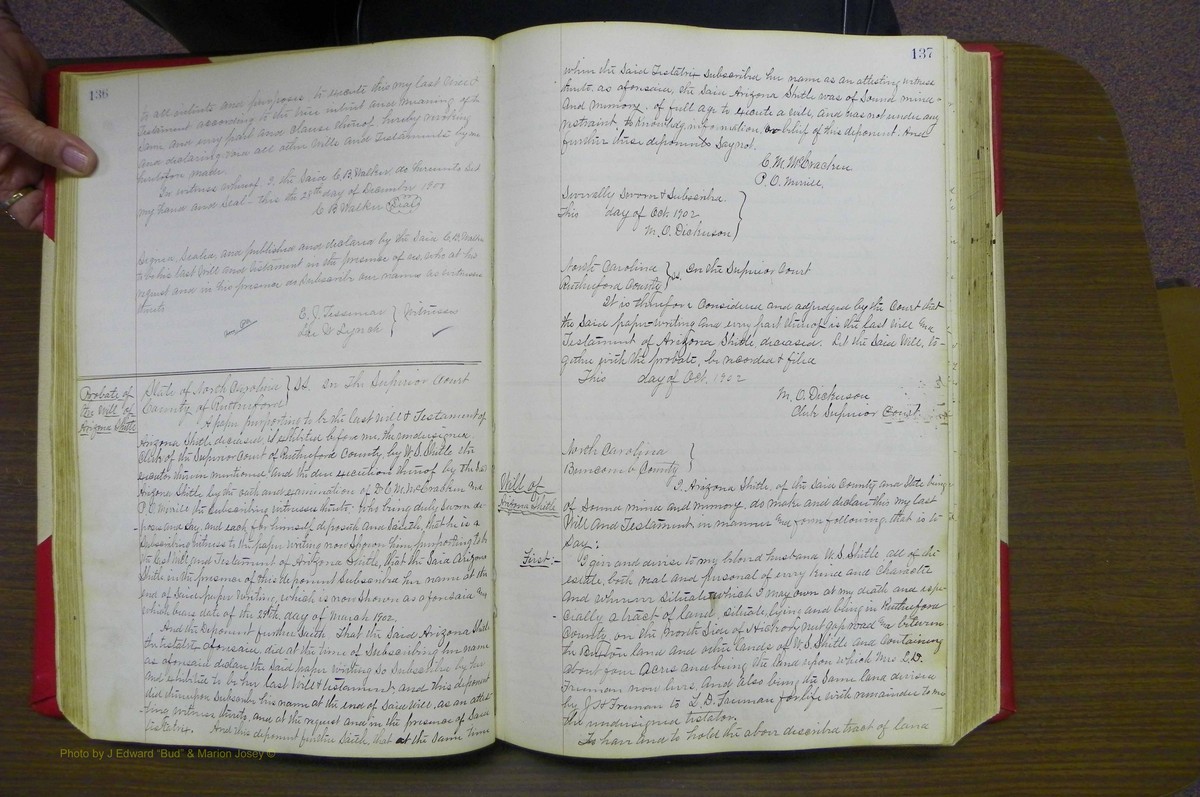 136
to all intents and purposes to execute this my last Will &
Testament according to the true intent and meaning of the
same and every part and clause thereof hereby revoking
and declaring void all other Wills and Testaments by me
heretofore made.
In witness whereof I, the said C. B. Walker, do hereunto set
my hand and Seal. this the 28th day of December 1900
C B Walker (Seal)
Signed, Sealed, and published and declared by the said C. B. Walker
to be his last Will and testament in the presence of us, who at his
request and in his presence do Subscribe our names as witnesses
thereto
C. J. Tessenear } Witnesses
Lee D Lynch
Probate of
the Will of
Arizona Shitle
State of North Carolina } SS. In The Superior Court
County of Rutherford
A paper purporting to be the last Will & Testament of
Arizona Shitle, deceased, is exhibited before me, the undersigned
Clerk of the Superior Court of Rutherford County, by W. S. Shitle the
executor therein mentioned and the due execution thereof by the said
Arizona Shitle by the oath and examination of Dr C. M. McCracken and
P. O. Merrill the subscribing witnesses thereto. Who being duly sworn de-
poses and say, and each for himself deposeth and saith, that he is a
subscribing witness to the paper writing now shown him purporting to be
the last Will and Testament of Arizona Shitle, that the said Arizona
Shitle in the presence of this deponent Subscribed her name at the
end of said paper writing, which is now shown as aforesaid and
which bears date of the 28th day of March 1902.
And the deponent further saith, That the said Arizona Shitle
the testatrix aforesaid did at the time of Subscribing her name
as aforesaid declare the said paper writing so Subscribed by her
and exhibited to be her last Will & testament, and this deponent
did thereupon Subscribe his name at the end of said Will, as an attest-
ing witness thereto, and at the request and in the presence of said
testatrix. And this deponent further saith, that at the same time
137
when the Said Testatrix Subscribed her name as an attesting witness
thereto as aforesaid, the Said Arizona Shitle was of Sound mind
and memory, of full age to execute a will, and was not under any
restraint to knowledge, information, or belief of this deponent. And
further these deponents say not.
C. M. McCracken
P. O. Merrill,
Severally Sworn & Subscribed
this day of Oct. 1902,
M. O. Dickerson
North Carolina } SS. In the Superior Court
Rutherford County
It is therefore Considered and adjudged by the Court that
the Said paper-writing and every part thereof is the last Will and
Testament of Arizona Shitle deceased. Let the Said Will, to-
gether with the probate, be recorded & filed
This day of Oct. 1902
M. O. Dickerson
Clerk Superior Court.
North Carolina
Buncomb County
Will of
Arizona Shitle
I, Arizona Shitle, of the Said County and State being
of Sound mind and memory, do make and declare this my last
Will and Testament, in manner and form following that is to
say:
First:- I give and devise to my beloved husband W. S. Shitle all of the
estate, both real and personal of every kind and character
and wherever Situate which I may own at my death and espe-
cially a tract of land, situate, lying and being in Rutherford
County on the North Side of Hickory nut gap road and between
the Burton land and other lands of W. S. Shitle and Containing
about four Acres and being the land upon which Mrs. L. D.
Freeman now lives, and also being the same land devised
by J. H. Freeman to L. D. Freeman for life with remainder to me
the undersigned testator.
To have and to hold the above described tract of land
Photo by J Edward "Bud" & Marion Josey ©